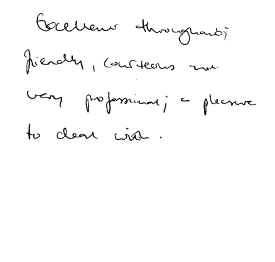 Excellent throughout;
friendly, courteous and
very professional; a pleasure
to deal with.